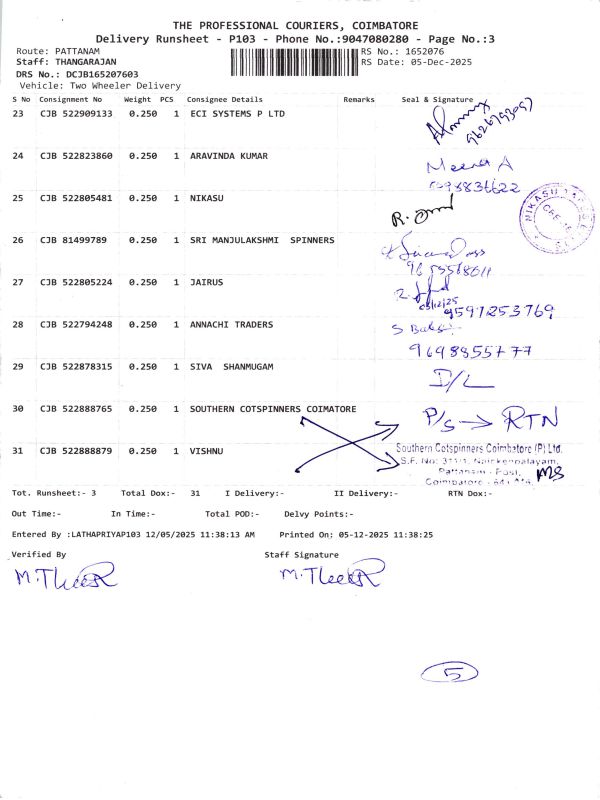 THE PROFESSIONAL COURIERS, COIMBATORE
Delivery Runsheet - P103 - Phone No.:9047080280 - Page No.:3
Route: PATTANAM RS No.: 1652076
Staff: THANGARAJAN RS Date: 05-Dec-2025
DRS No.: DCJB165207603
Vehicle: Two Wheeler Delivery
S No Consignment No Weight PCS Consignee Details Remarks Seal & Signature
23 CJB 522909133 0.250 1 ECI SYSTEMS P LTD
9626793097
24 CJB 522823860 0.250 1 ARAVINDA KUMAR Meena A
25 CJB 522805481 0.250 1 NIKASU
NIKASU
26 CJB 81499789 0.250 1 SRI MANJULAKSHMI SPINNERS
27 CJB 522805224 0.250 1 JAIRUS
05/12/25 9597253769
28 CJB 522794248 0.250 1 ANNACHI TRADERS
9698855777
29 CJB 522878315 0.250 1 SIVA SHANMUGAM D/L
30 CJB 522888765 0.250 1 SOUTHERN COTSPINNERS COIMATORE P/S → RTN
31 CJB 522888879 0.250 1 VISHNU Southern Cotspinners Coimbatore (P) Ltd.
S.F. No: 311/1, Naickenpalayam,
Pattanam - Post,
Coimbatore - 641 016
Tot. Runsheet:- 3 Total Dox:- 31 I Delivery:- II Delivery:- RTN Dox:-
Out Time:- In Time:- Total POD:- Delvy Points:-
Entered By :LATHAPRIYAP103 12/05/2025 11:38:13 AM Printed On: 05-12-2025 11:38:25
Verified By Staff Signature
5